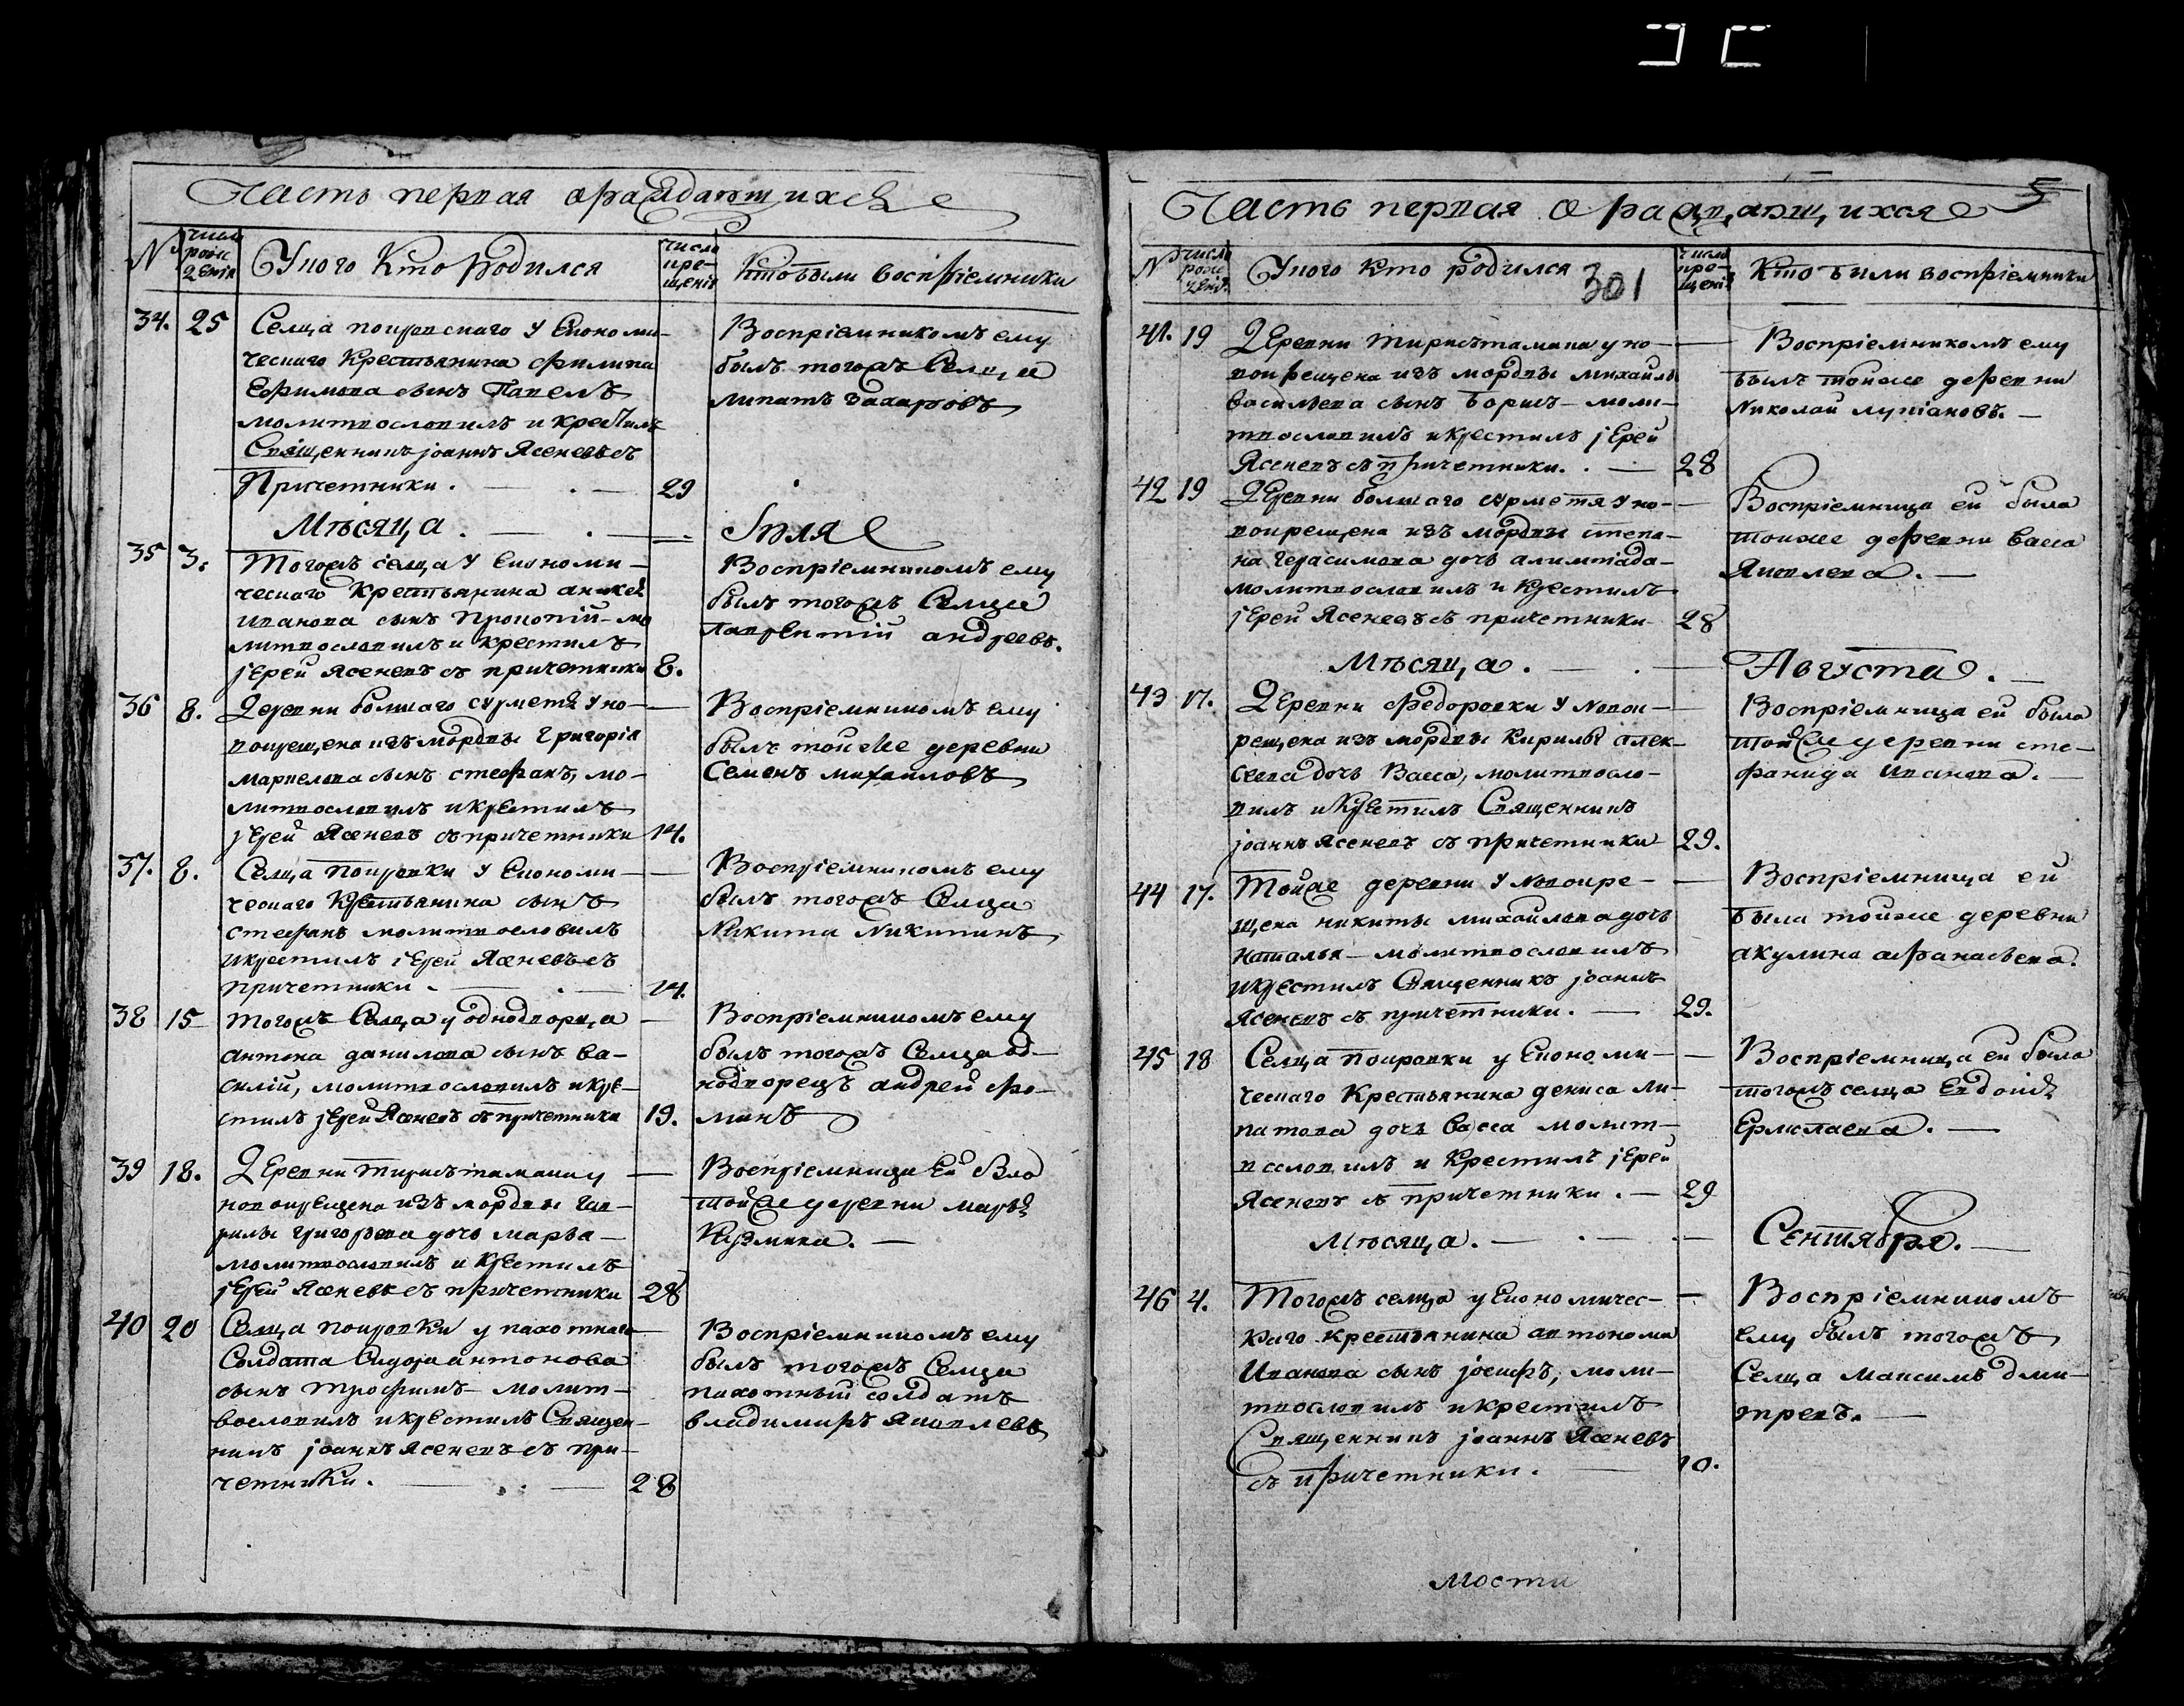 Часть первая о раждающихся
№
число рождения
У кого кто родился
число крещения
Кто были восприемники
34. 25
Селца покровскаго у Економи-
ческаго Крестьянина филипа
Ефимова сынъ Павелъ
молитвословилъ и крестилъ
Священникъ jоаннъ Ясеневъ съ
Причетники. 29
Восприемникомъ ему
былъ тогожъ Селца
липатъ Захаровъ
Мѣсяца. Іюля
35 3.
Тогожъ селца у економи-
ческаго Крестьянина аникея
иванова сынъ Прокопій - мо
литвословилъ и крестилъ
jерей Ясеневъ съ причетники 8.
Восприемникомъ ему
былъ тогожъ Селца
Лаврентій андреевъ.
36 8.
Деревни болшаго сурметя у но-
вокрещена изъ мордвы Григорія
маркелова сынъ стефанъ, мо-
литвословилъ и крестилъ
jерей Ясеневъ съ причетники 14.
Восприемникомъ ему
былъ тойже деревни
Семенъ михаиловъ
37. 8.
Селца Покровки у Економи-
ческаго Крестьянина сынъ
стефанъ молитвословилъ
и крестилъ jерей Ясеневъ съ
причетники. 14.
Восприемникомъ ему
былъ тогожъ Селца
Никита Никитинъ
38 15
тогожъ Селца у однодворца
антона данилова сынъ ва-
силій, молитвословилъ и кре-
стилъ jерей Ясеневъ съ причетники 19.
Восприемникомъ ему
былъ тогожъ Селца од-
нодворецъ андрей фо-
минъ
39 18.
Деревни Тирисътамака у
новокрещена изъ мордвы гав-
рилы григорьева дочь марва -
молитвословилъ и крестилъ
jерей Ясеневъ съ причетники 28
Восприемница Ей была
тойже деревни марья
Кузмина.
40 20
Селца покровки у пахотнаго
Солдата Сидора антонова
сынъ трофимъ - молит-
вословилъ и крестилъ Священ-
никъ jоаннъ Ясеневъ съ при-
четники. 28
Восприемникомъ ему
былъ тогожъ Селца
пахотный солдатъ
владимиръ яковлевъ
Часть первая о раждающихся
5
№
число рождения
У кого кто родился
301
число крещения
Кто были восприемники
41. 19
Деревни тирисътамака у но-
вокрещена изъ мордвы михаила
васильева сынъ Борисъ - моли-
твословилъ и крестилъ jерей
Ясеневъ съ причетники. 28
Восприемникомъ ему
былъ тойже деревни
Николай лукіановъ.
42 19
Деревни болшаго сурметя у но-
вокрещена изъ мордвы степа-
на герасимова дочь алимпіада -
молитвословилъ и крестилъ
jерей Ясеневъ съ причетники 28
Восприемница ей была
тойже деревни васса
Яковлева.
Мѣсяца. Августа.
43 17.
Деревни федоровки у Новок-
рещена изъ мордвы Кирилы алек-
сеева дочь Васса, молитвосло-
вилъ и крестилъ Священникъ
jоаннъ Ясеневъ съ причетники 29.
Восприемница ей была
тойже деревни сте-
фанида иванова.
44 17.
Тойже деревни у Новокре-
щена никиты михайлова дочь
наталья - молитвословилъ
и крестилъ Священникъ jоаннъ
Ясеневъ съ причетники. 29.
Восприемница ей
была тойже деревни
акулина афанасьева.
45 18
Селца Покровки у Економи-
ческаго Крестьянина дениса ли-
патова дочь васса молит-
вословилъ и крестилъ jерей
Ясеневъ съ причетники. 29
Восприемница ей была
тогожъ селца Евдокія
Ермолаева.
Мѣсяца. Сентября.
46 4.
Тогожъ селца у Економичес-
каго крестьянина автонома
Иванова сынъ jосифъ, моли-
твословилъ и крестилъ
Священникъ jоаннъ Ясеневъ
съ причетники. 10.
Восприемникомъ
ему былъ тогожъ
Селца Максимъ дми-
тревъ.
мости